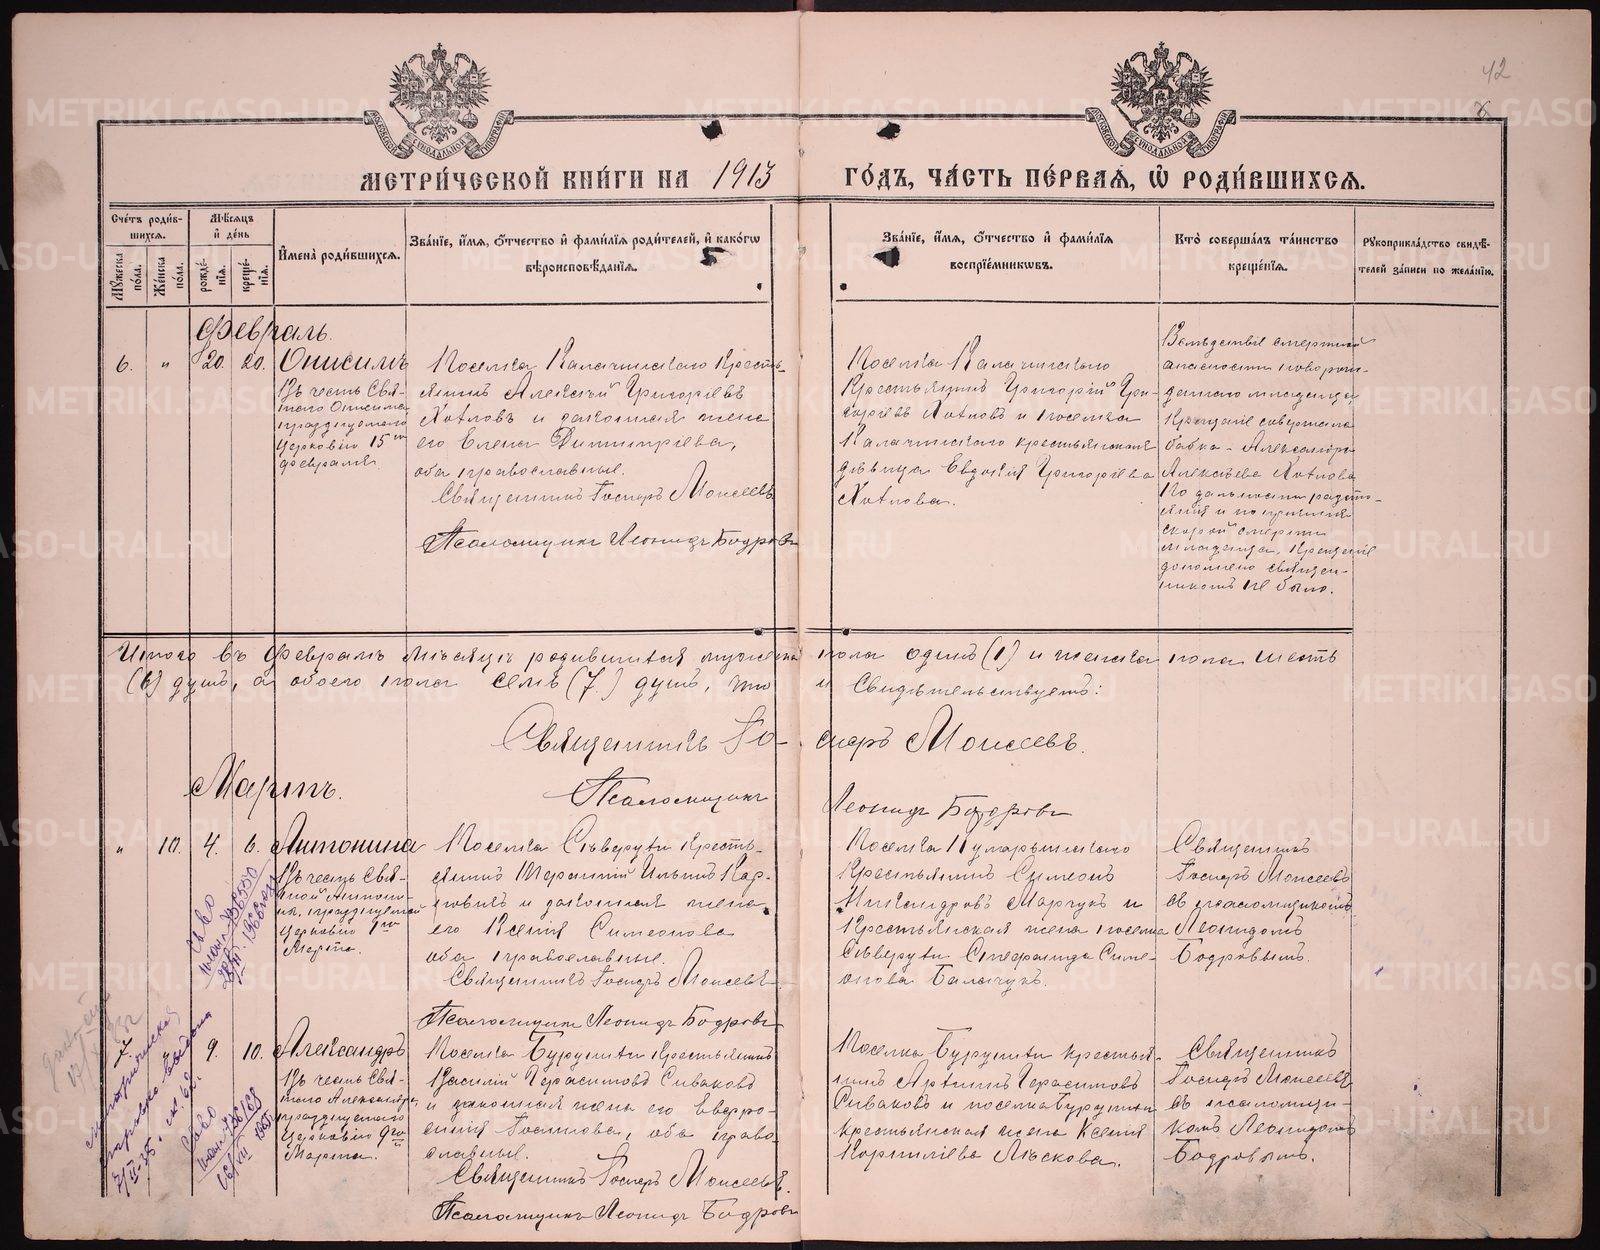 42
МЕТРИ́ЧЕСКОЙ КНИ́ГИ НА 1913 ГО́ДЪ, ЧА́СТЬ ПЕ́РВАЯ, Ѽ РОДИ́ВШИХСЯ.
Сче́тъ роди́в-
шихся.
Мѣ́сяцъ
и де́нь
Му́жеска по́ла.
Же́нска по́ла.
рожде́-
нїя.
креще́-
нїя.
Имена̀ роди́вшихся.
Зва́нїе, и́мя, о́тчество и фами́лїя роди́телей, и како́гѡ
вѣроисповѣ́данїя.
Зва́нїе, и́мя, о́тчество и фами́лїя
воспрїе́мникѡвъ.
Кто̀ соверша́лъ та́инство
креще́нїя.
Рꙋкоприкла́дство свидѣ́-
телей за́писи по жела́нїю.
Февраль.
6. " 20. 20. Онисимъ
Въ честь Свя-
таго Онисима,
празднуемаго
Церковію 15го
февраля.
Поселка Калачинскаго Кресть-
янинъ Алексѣй Григоріевъ
Хохловъ и законная жена
его Елена Димитріева,
оба православные.
Священникъ Госперъ Моисеевъ
Псаломщикъ Леонидъ Бодровъ
Поселка Калачинскаго
Крестьянинъ Григорій Гри-
горіевъ Хохловъ и поселка
Калачинскаго крестьянская
дѣвица Евдокія Григоріева
Хохлова.
Вслѣдствіе смертной
опасности новорож-
деннаго младенца,
Крещеніе совершала
бабка - Александра
Алексѣева Хохлова
По дальности разсто-
янія и по причинѣ
скорой смерти
младенца, Крещеніе
дополнено священ-
никомъ не было.
Итого въ Февралѣ мѣсяцѣ родившихся мужеска пола одинъ (1) и женска пола шесть
(6) душъ, а обоего пола семь (7.) душъ, что и Свидѣтельствуемъ:
Священникъ Госперъ Моисеевъ.
Псаломщикъ Леонидъ Бодровъ
Мартъ.
" 10. 4. 6. Антонина
Въ честь Свя-
той Антони-
ны, празднуемой
Церковію 1го
Марта.
Поселка Сѣверути Кресть-
янинъ Терентій Ильинъ Кар-
повичъ и законная жена
его Ксенія Симеонова
оба православные.
Священникъ Госперъ Моисеевъ
Псаломщикъ Леонидъ Бодровъ
Крестьянинъ Симеонъ
Никандровъ Марчукъ и
Крестьянская жена поселка
Сѣверути Стефанида Симе-
онова Балачукъ.
Священникъ
Госперъ Моисеевъ
съ псаломщикомъ
Леонидомъ
Бодровымъ.
7. 9. 10. Александръ
Въ честь Свя-
таго Александра,
празднуемаго
Церковію 9го
Марта.
Поселка Бурушти Крестьянинъ
Василій Герасимовъ Сиваковъ
и законная жена его Евфро-
синія, оба право-
славные.
Священникъ Госперъ Моисеевъ.
Псаломщикъ Леонидъ Бодровъ
Поселка Бурушти крестья-
нинъ Герасимовъ
Сиваковъ и поселка Бурушти
крестьянская жена Ксенія
Корнилієва Лѣскова.
Священникъ
Госперъ Моисеевъ
съ псаломщи-
комъ Леонидомъ
Бодровымъ.
METRIKI.GASO-URAL.RU